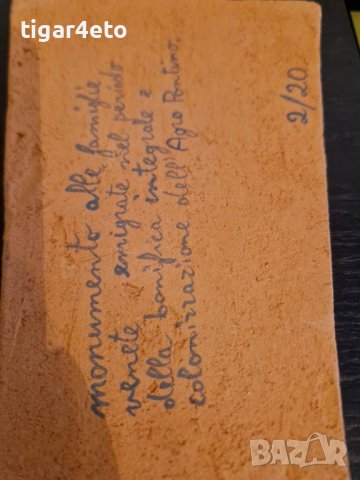 tigar4eto
monumento alle famiglie
venete emigrate nel periodo
della bonifica integrale e
colonizzazione dell'Agro Pontino.
2/20
BAZAR